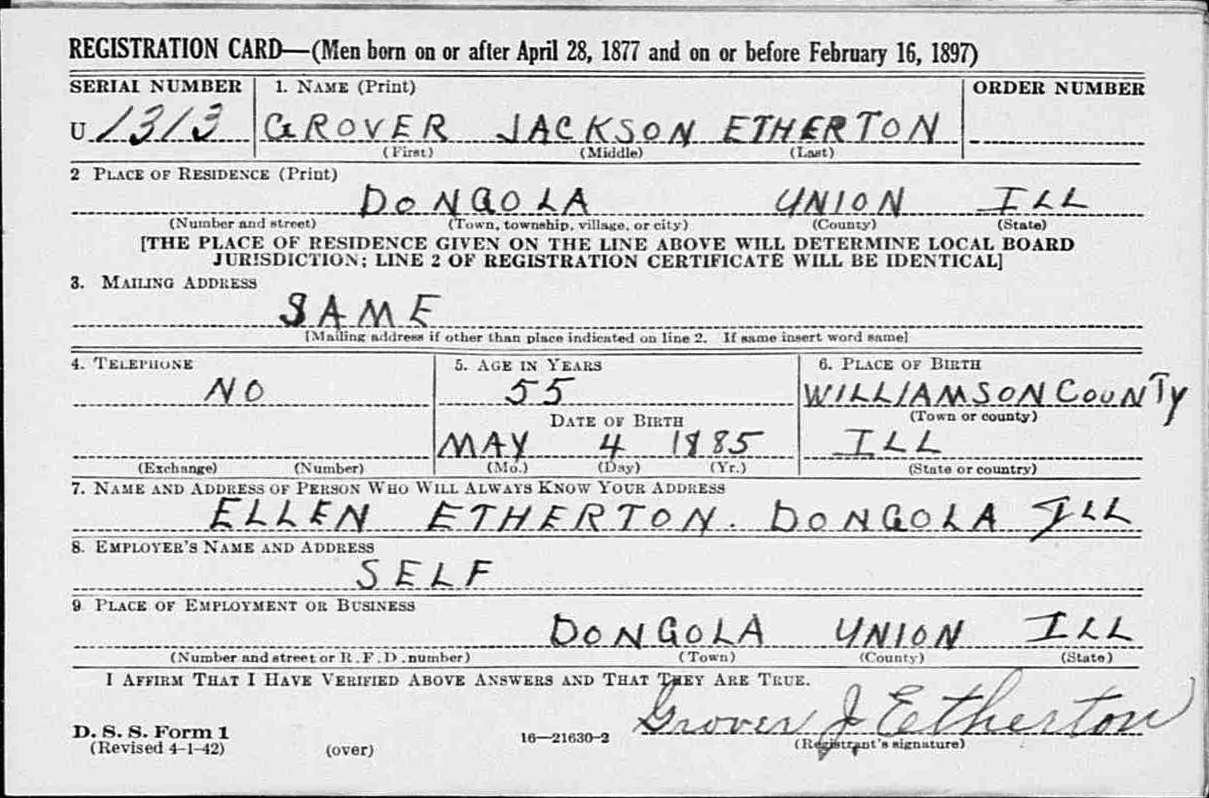 REGISTRATION CARD—(Men born on or after April 28, 1877 and on or before February 16, 1897)
SERIAL NUMBER 1. NAME (Print) ORDER NUMBER
U 1313 GROVER JACKSON ETHERTON
(First) (Middle) (Last)
2 PLACE OF RESIDENCE (Print)
DONGOLA UNION ILL
(Number and street) (Town, township, village, or city) (County) (State)
[THE PLACE OF RESIDENCE GIVEN ON THE LINE ABOVE WILL DETERMINE LOCAL BOARD
JURISDICTION; LINE 2 OF REGISTRATION CERTIFICATE WILL BE IDENTICAL]
3. MAILING ADDRESS
SAME
[Mailing address if other than place indicated on line 2. If same insert word same]
4. TELEPHONE 5. AGE IN YEARS 6. PLACE OF BIRTH
NO 55 WILLIAMSON COUNTY
DATE OF BIRTH (Town or county)
MAY 4 1885 ILL
(Exchange) (Number) (Mo.) (Day) (Yr.) (State or country)
7. NAME AND ADDRESS OF PERSON WHO WILL ALWAYS KNOW YOUR ADDRESS
ELLEN ETHERTON. DONGOLA ILL
8. EMPLOYER'S NAME AND ADDRESS
SELF
9 PLACE OF EMPLOYMENT OR BUSINESS
DONGOLA UNION ILL
(Number and street or R.F.D. number) (Town) (County) (State)
I AFFIRM THAT I HAVE VERIFIED ABOVE ANSWERS AND THAT THEY ARE TRUE.
Grover J Etherton
D. S. S. Form 1
(Revised 4-1-42) (over) 16—21630-2 (Registrant's signature)